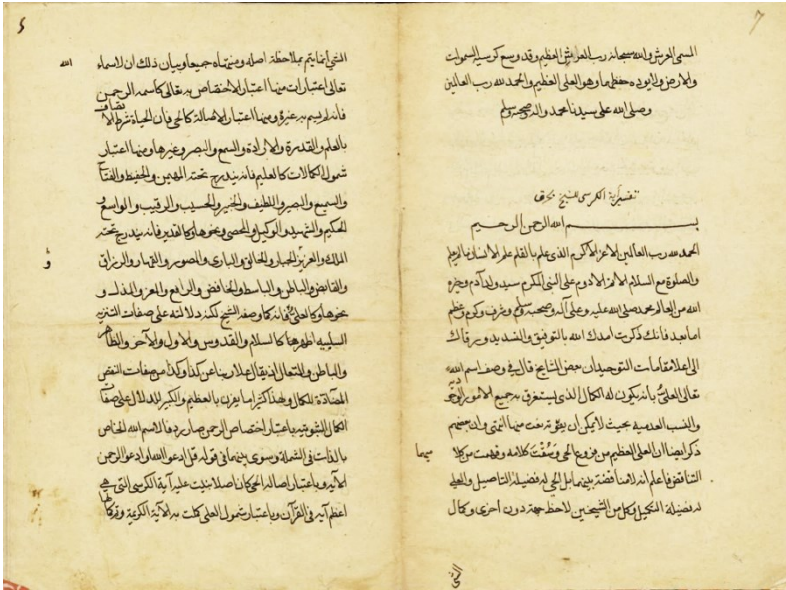 ٧
المسمى العرش والله سبحانه رب العرش العظيم وقد وسع كرسيه السموات
والارض ولا يوده حفظهما وهو العلى العظيم والحمد لله رب العالمين
وصلى الله على سيدنا محمد واله وصحبه وسلم
تفسير آية الكرسى للشيخ بحرق
بسم الله الرحمن الرحيم
الحمد لله رب العالمين الاعز الاكرم الذى علم بالقلم علم الانسان ما لم يعلم
والصلوة مع السلام الاتم الادوم على النبى المكرم سيد ولد آدم وخيرة
الله من العالم محمد صلى الله عليه وعلى آله وصحبه وسلم وشرف وكرم وعظم
اما بعد فانك ذكرت امدك الله بالتوفيق والتسديد ورقاك
الى اعلا مقامات التوحيد ان بعض المشايخ قال فى وصف اسم الله
تعالى العلىّ بانه يكون له الكمال الذى يستغرق به جميع الامور الوجودية
والنسب العدمية بحيث لا يمكن ان يفوته نعت منها وان بعضهم
ذكر ايضا ان العلى العظيم من فروع الحى وسُقْتَ كلامه وفهمت من كلا
ميهما
التناقض فاعلم انه لا مناقضة بينهما بل الحى له فضيلة التاصيل والعلى
له فضيلة التكميل وكل من الشيخين لاحظ جهة دون اخرى وكمال
الشئ
الشئ انما يتم بملاحظة اصله ومنتهاه جميعا وبيان ذلك ان لاسماء
الله
تعالى اعتبارات منها اعتبار الاختصاص به تعالى كاسمه الرحمن
فانه لم يسم به غيره ومنها اعتبار الاصالة كالحى فان الحياة شرط الاتصاف
بالعلم والقدرة والارادة والسمع والبصر وغيرها ومنها اعتبار
شمول الكمالات كالعليم فانه يندرج تحته المهيمن والحفيظ والفتاح
والسميع والبصير واللطيف والخبير والحسيب والرقيب والواسع و
الحكيم والشهيد والوكيل والمحصى ونحوها وكالقدير فانه يندرج تحته
الملك والعزيز الجبار والخالق والبارى والمصور والقهار والرزاق
و
والقابض والباسط والخافض والرافع والمعز والمذل و
نحوها وكالعلىّ فانه كما وصفه الشيخ لكنه دلالته على صفات التنزيه
السلبيه اظهرها كالسلام والقدوس والاول والآخر والظاهر
والباطن والمتعال اذ يقال علا ربنا عن كذا وكذا من صفات النقص
المضادة للكمال ولهذا كثيرا ما يقرن بالعظيم والكبير للدلال على صفات
الكمال الثبوتيه باعتبار اختصاص الرحمن صار رديفا لاسم الله الخاص
بالذات فى الشملة وسوى بينهما فى قوله قل ادعوا الله او ادعوا الرحمن
الآيه وباعتبار اصاله الحى كان اصلا بنيت عليه آية الكرسى التى هى
اعظم آيه فى القرآن وباعتبار شمول العلى كملت به الآية الكريمة